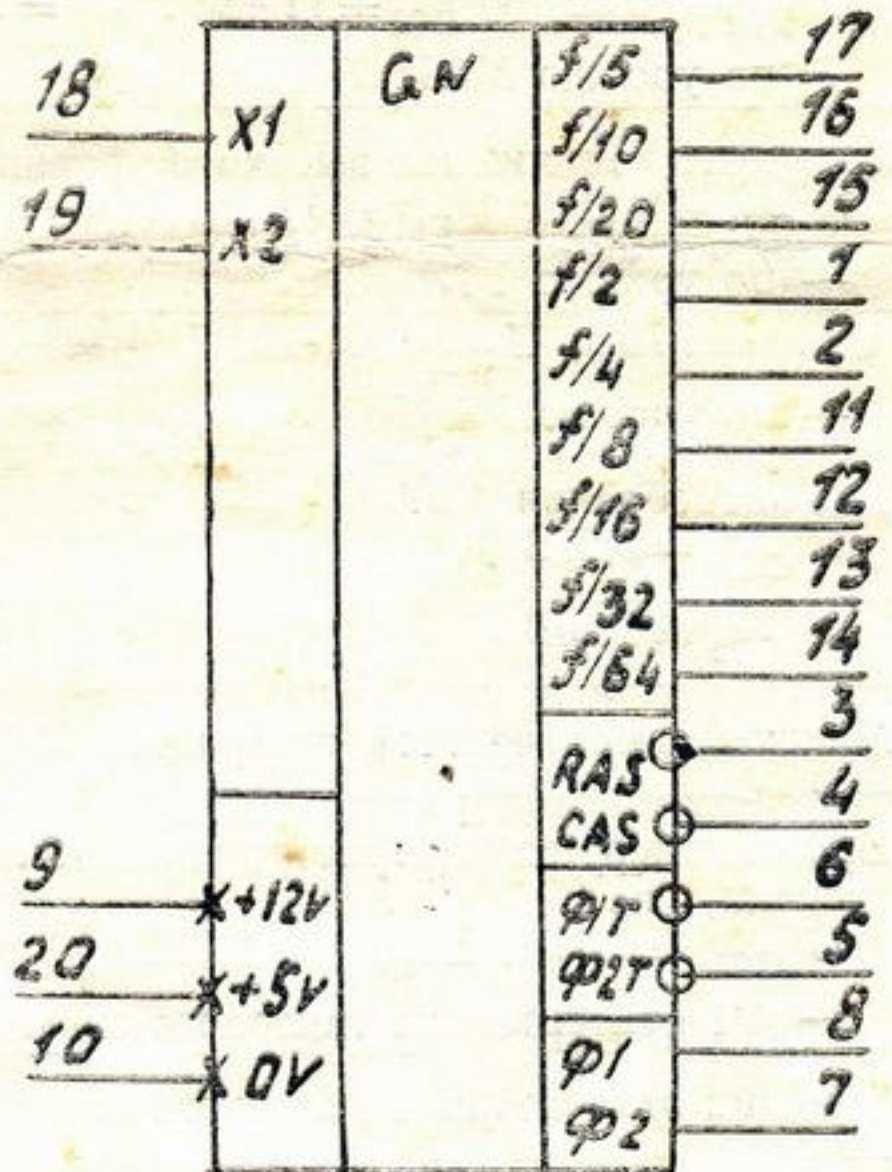 GN
18
X1
19
X2
9
+12V
20
+5V
10
0V
f/5
17
f/10
16
f/20
15
f/2
1
f/4
2
f/8
11
f/16
12
f/32
13
f/64
14
RAS
3
CAS
4
φ1T
6
φ2T
5
φ1
8
φ2
7